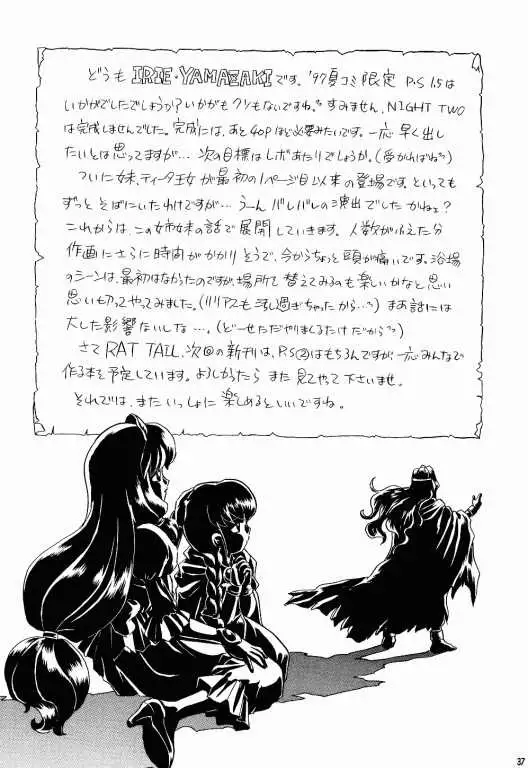 どうも IRIE・YAMAZAKIです。'97夏コミ限定 P.S 1.5は
いかがでしたでしょうか?いかがもクソもないですね。すみません、NIGHT TWO
は完成しませんでした。完成には、あと40Pほど必要みたいです。一応 早く出し
たいとは思ってますが… 次の目標はレボあたりでしょうか。(受かればね)
ついに妹、ティータ王女が最初の1ページ目以来の登場です。といっても
ずっと そばにいたわけですが… うーん バレバレの演出でした かねぇ?
これからは、この姉妹の話で展開していきます。人数がふえた分
作画にさらに時間がかかりそうで、今からちょっと頭が痛いです。浴場
のシーンは、最初はなかったのですが、場所 て替えてみるのも楽しいかなと思い
思い切ってやってみました。(リリアスも 過ぎちゃったから…) まあ話には
大した影響ないしな…。(どーせただやりまくるだけだから)
さて RAT TAIL、次の新刊は、P.S②はもちろんですが、一応みんなで
作る本を予定しています。よろしかったら また見てやって下さいませ。
それでは、またいっしょに楽しめるといいですね。
37